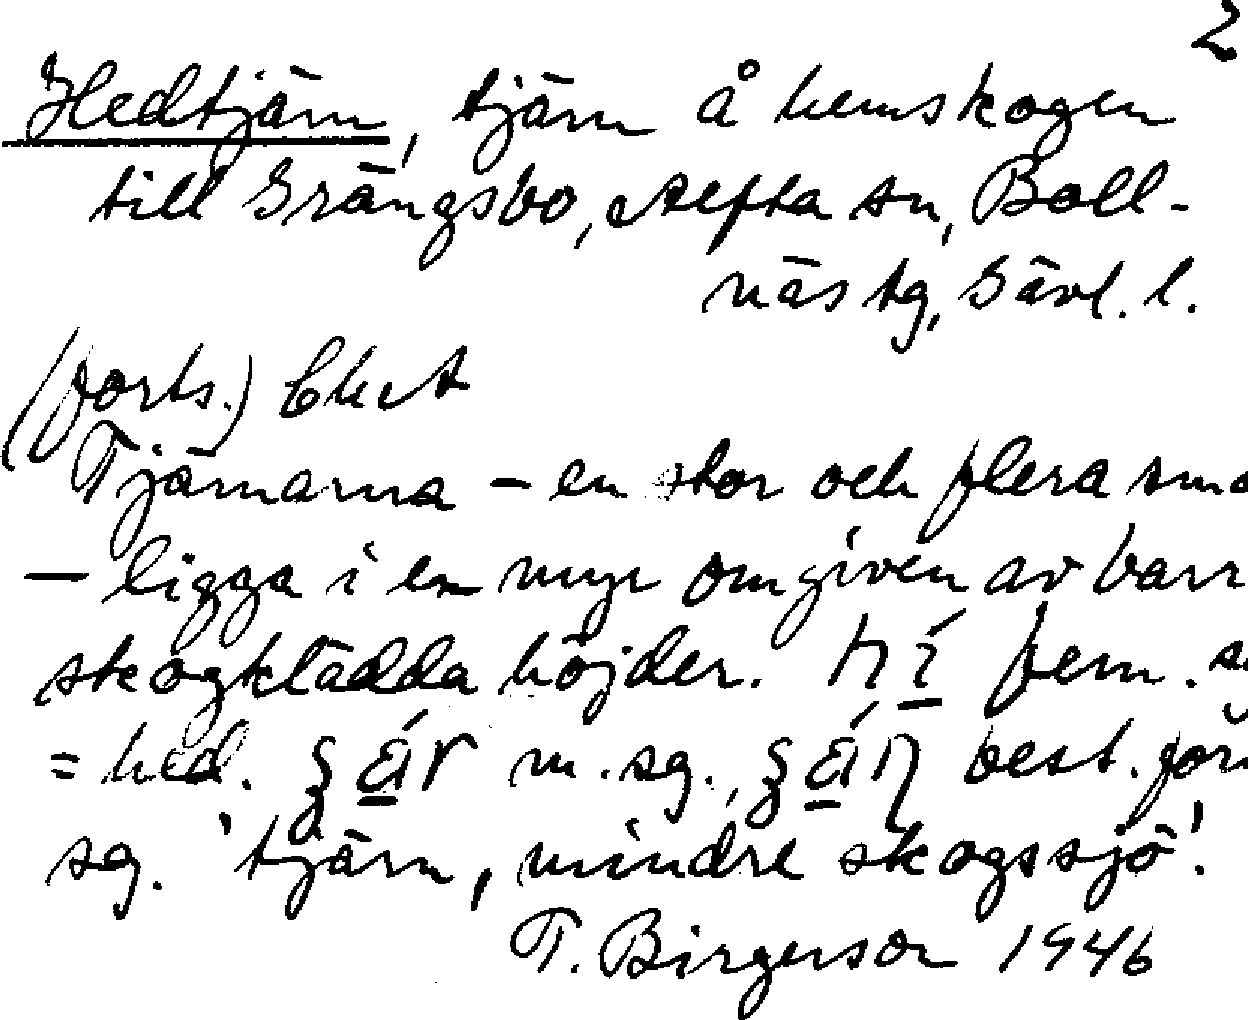 2
Hedtjärn, tjärn å hemskogen
till Grängsbo, Alfta sn, Boll-
näs tg, Gävl. l.
(forts.)
Tjärnarna – en stor och flera små
– ligga i en myr omgiven av barr
skogklädda höjder. fem. s
= hed. m. sg., best. for
sg. 'tjärn, mindre skogssjö'.
T. Birgerson 1946